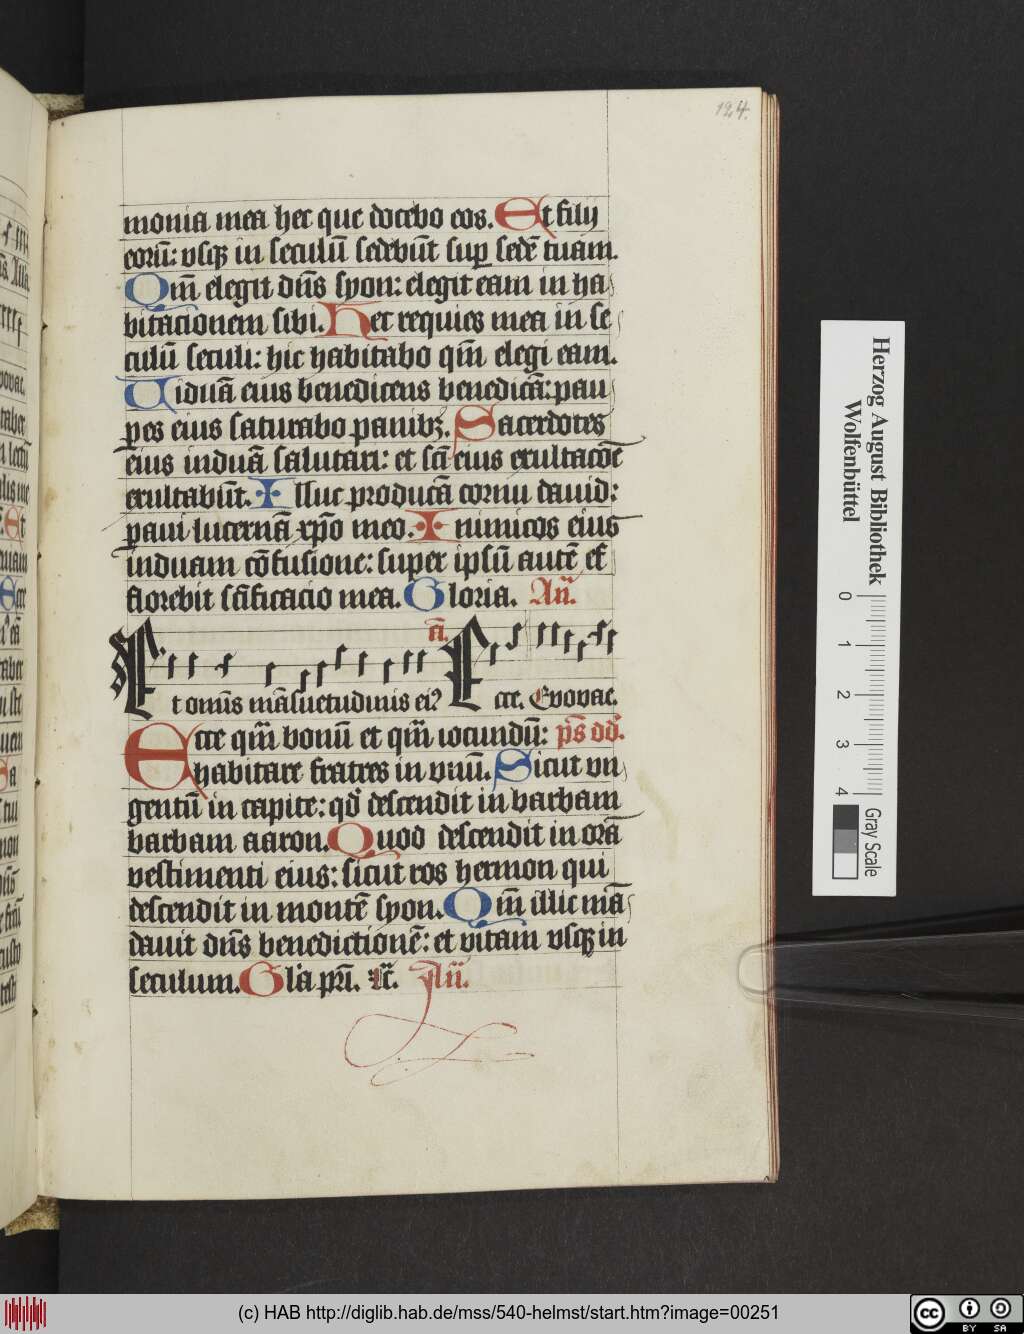 124.
monia mea hec que docebo eos. Et filij
eorū: vsqꝫ in seculū sedebūt suꝑ sedē tuam.
Qm̄ elegit dn̄s syon: elegit eam in ha
bitacionem sibi. Hec requies mea in se
culū seculi: hic habitabo qm̄ elegi eam.
Uiduā eius benedicens benedicā: pau
pes eius saturabo panibꝫ. Sacerdotes
eius induā salutari: et sc̄i eius exultacōe
exultabūt. Illuc producā cornu dauid:
paui lucernā xp̄o meo. Inimicos eius
induam cōfusione: super ipsū autē ef
florebit sc̄ificacio mea. Gloria. An̄.
Et omīs māsuetudinis ei⁹ Ecce. Evovae.
Ecce qm̄ bonū et qm̄ iocundū: ps̄ dd̄.
habitare fratres in vnū. Sicut vn
gentū in capite: qd̄ descendit in barbam
barbam aaron. Quod descendit in orā
vestimenti eius: sicut ros hermon qui
descendit in montē syon. Qm̄ illic mā
dauit dn̄s benedictionē: et vitam vsqꝫ in
seculum. Gl̄a pr̄i. An̄.
Herzog August Bibliothek
Wolfenbüttel
0 1 2 3 4
Gray Scale
(c) HAB http://diglib.hab.de/mss/540-helmst/start.htm?image=00251
cc BY SA